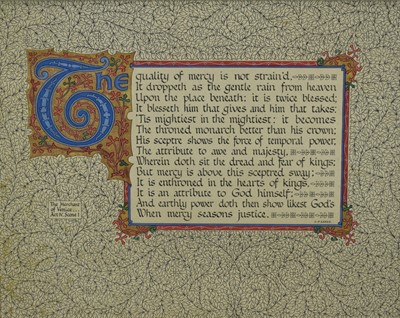 The quality of mercy is not strain'd,
It droppeth as the gentle rain from heaven
Upon the place beneath: it is twice blessed;
It blesseth him that gives and him that takes;
'Tis mightiest in the mightiest: it becomes
The throned monarch better than his crown;
His sceptre shows the force of temporal power,
The attribute to awe and majesty,
Wherein doth sit the dread and fear of kings:
But mercy is above this sceptred sway;
It is enthroned in the hearts of kings,
It is an attribute to God himself;
And earthly power doth then show likest God's
When mercy seasons justice.
The Merchant
of Venice
Act IV. Scene I